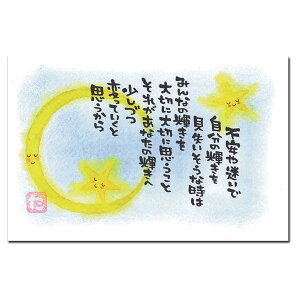 不安や迷いで
自分の輝きを
見失いそうな時は
みんなの輝きを
大切に大切に思うこと
それがあなたの輝きへ
少しづつ
変っていくと
思うから